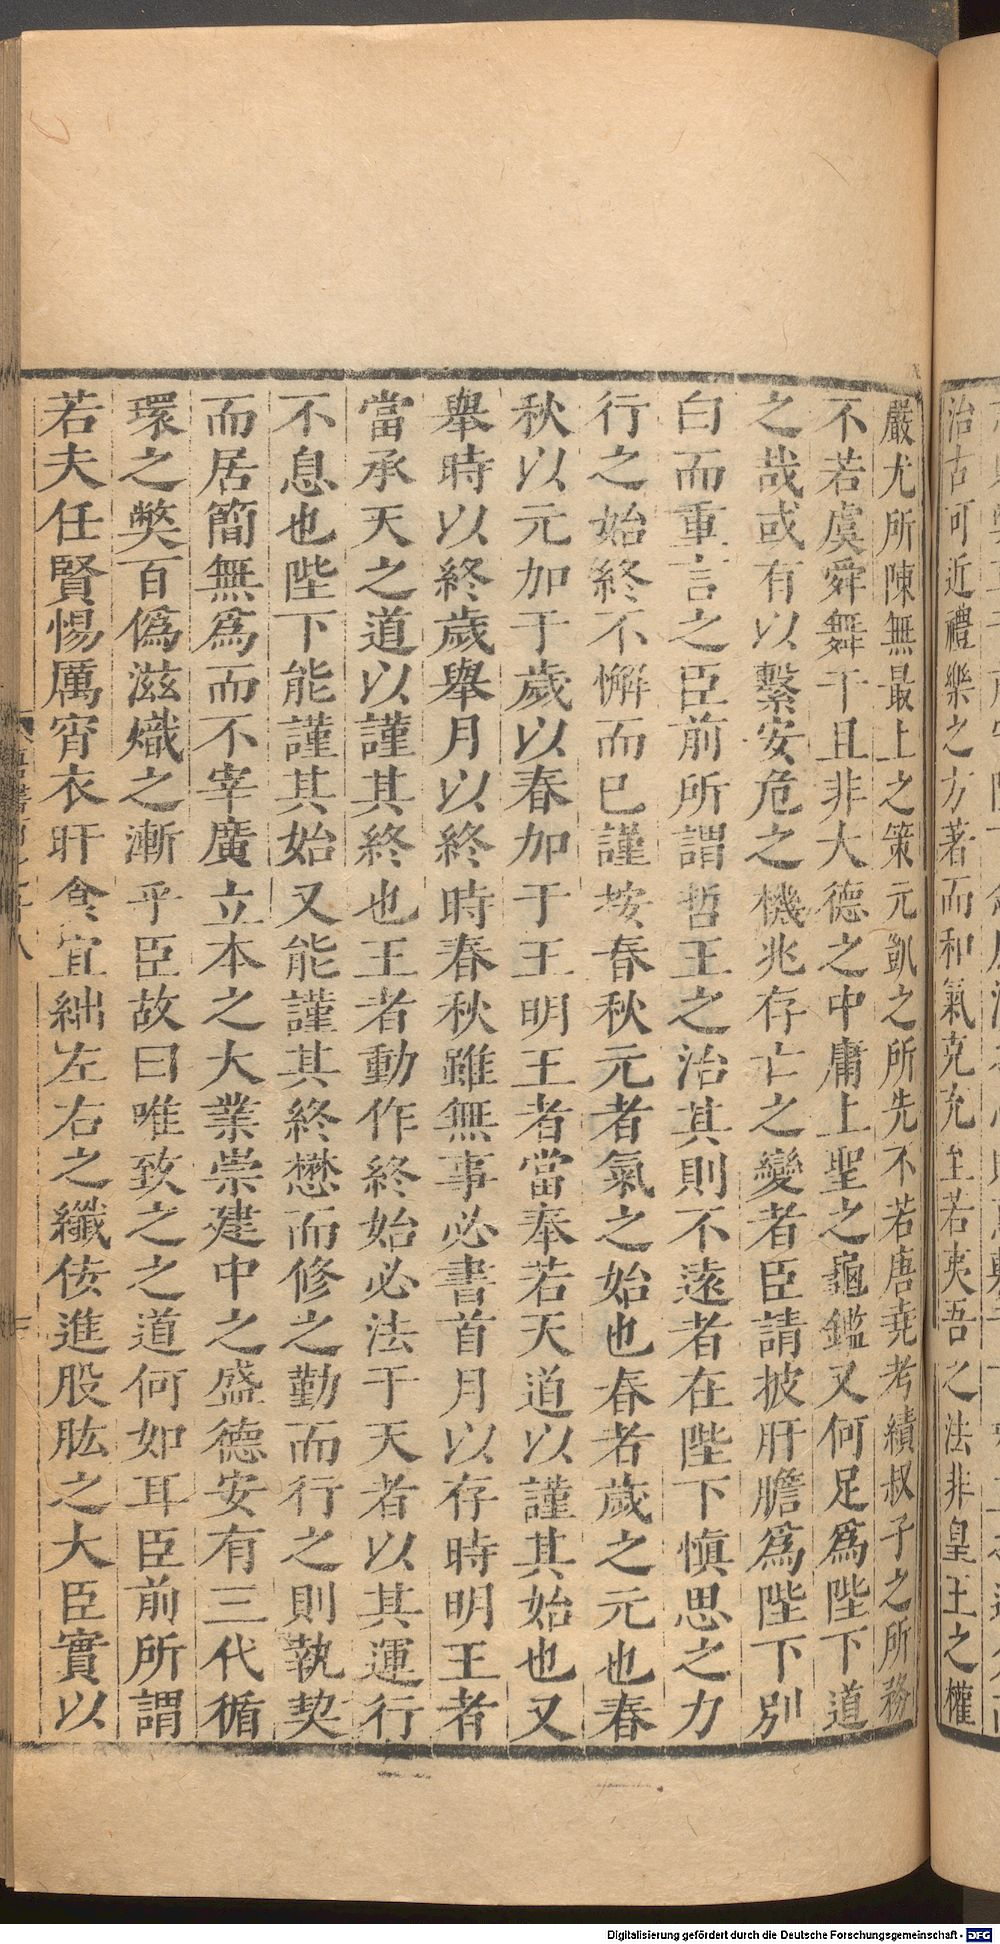 治古可近禮樂之方著而和氣克充至若夷吾之法非皇王之權
嚴尤所陳無最上之策元凱之所先不若唐堯考績叔子之所務
不若虞舜舞干且非大德之中庸上聖之龜鑑又何足爲陛下道
之哉或有以繫安危之機兆存亡之變者臣請披肝膽爲陛下別
白而重言之臣前所謂哲王之治其則不遠者在陛下慎思之力
行之始終不懈而已謹按春秋元者氣之始也春者歲之元也春
秋以元加于歲以春加于王明王者當奉若天道以謹其始也又
舉時以終歲舉月以終時春秋雖無事必書首月以存時明王者
當承天之道以謹其終也王者動作終始必法于天者以其運行
不息也陛下能謹其始又能謹其終懋而修之勤而行之則執契
而居簡無爲而不宰廣立本之大業崇建中之盛德安有三代循
環之弊百僞滋熾之漸乎臣故曰唯致之之道何如耳臣前所謂
若夫任賢惕厲宵衣旰食宜絀左右之纖佞進股肱之大臣實以
Digitalisierung gefördert durch die Deutsche Forschungsgemeinschaft - DFG